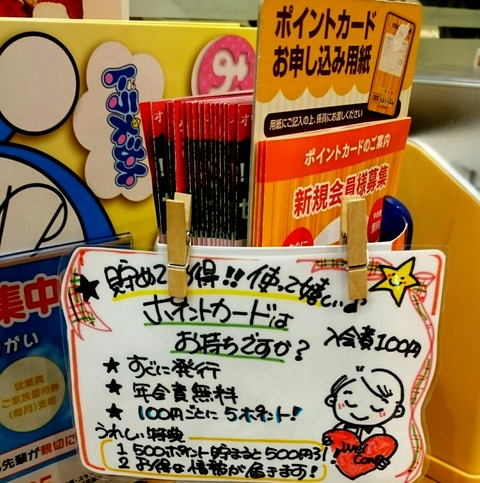 ポイントカード
お申し込み用紙
用紙にご記入の上、係員にお渡しください
ポイントカードのご案内
新規会員様募集
ドラえもん
★貯めてお得!!使って嬉しい♪
ポイントカードは
お持ちですか?
入会費100円
★すぐに発行
★年会費無料
★100円ごとに5ポイント!
うれしい特典
1 500ポイント貯まると500円引!
2 お得な情報が届きます!
集中
がい
従業員
ご家族優待券
(毎月)支給
先輩が親切に